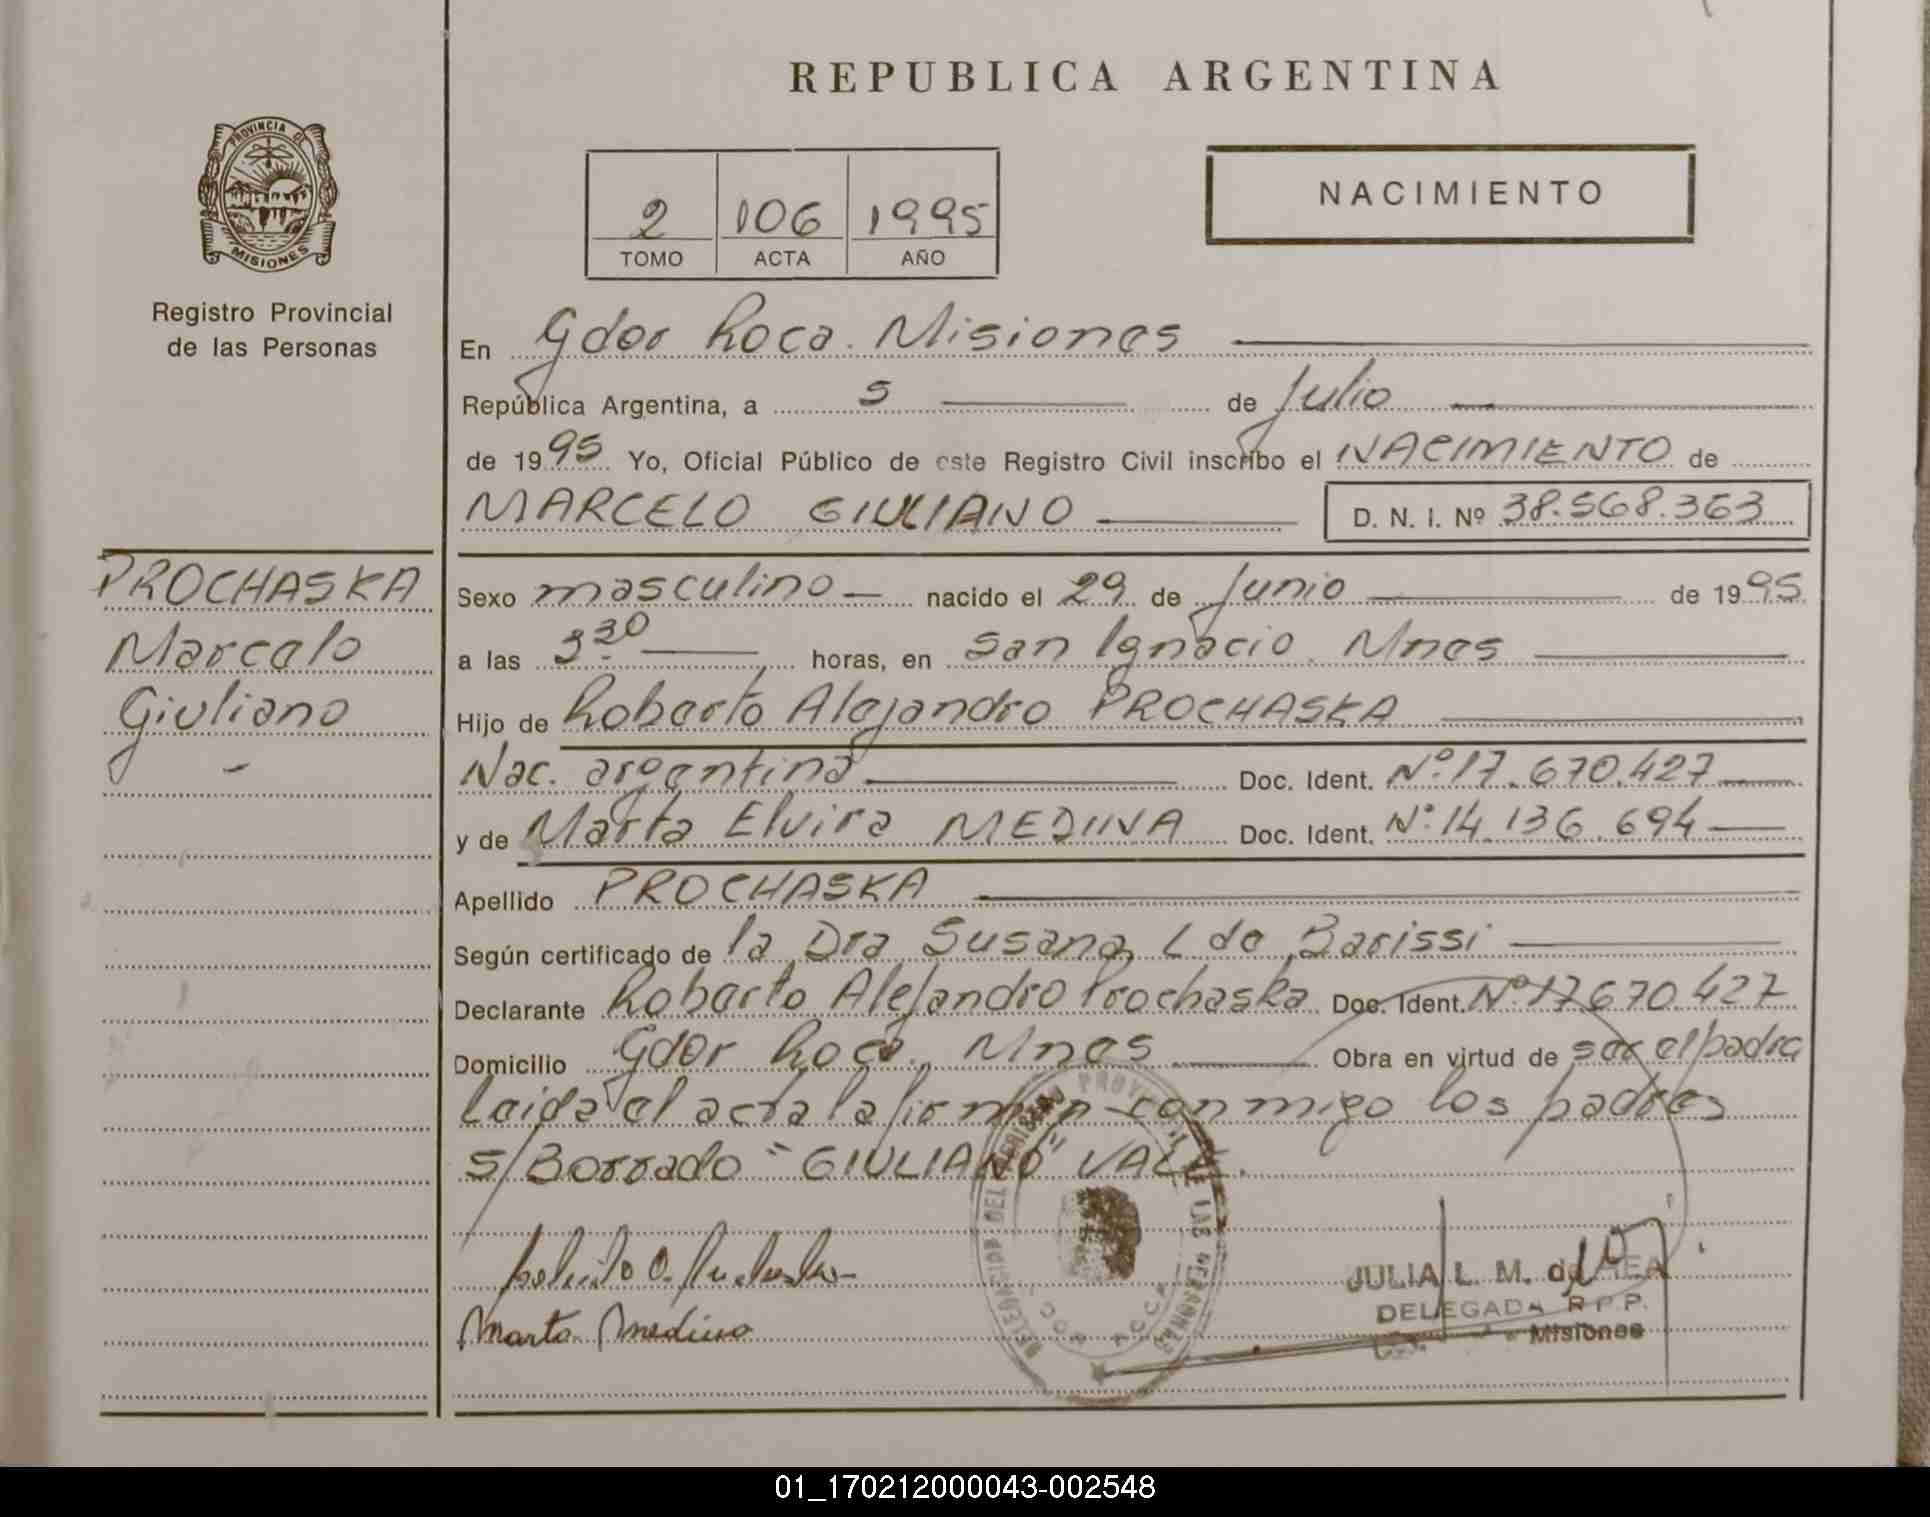 REPUBLICA ARGENTINA
PROVINCIA DE
MISIONES
Registro Provincial
de las Personas
2 106 1995
TOMO ACTA AÑO
NACIMIENTO
En Gdor Roca. Misiones
República Argentina, a 5 de Julio
de 1995 Yo, Oficial Público de este Registro Civil inscribo el NACIMIENTO de
MARCELO GIULIANO D. N. I. Nº 38.568.363
PROCHASKA
Marcelo
Giuliano
Sexo masculino nacido el 29 de Junio de 1995
a las 3 30 horas, en San Ignacio. Mnes
Hijo de Roberto Alejandro PROCHASKA
Nac. argentina Doc. Ident. Nº 17.670.427
y de Marta Elvira MEDINA Doc. Ident. Nº 14.136.694
Apellido PROCHASKA
Según certificado de la Dra Susana L de Barissi
Declarante Roberto Alejandro Prochaska Doc. Ident. Nº 17670.427
Domicilio Gdor Roca. Mnes Obra en virtud de ser el padre
Leida el acta la firman conmigo los padres
S/Borrado "GIULIANO" VALE.
Marta Medina
JULIA L. M. de
DELEGADA R.P.P.
Misiones
01_170212000043-002548